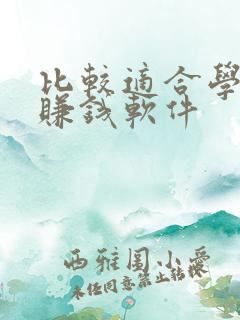 比較適合學
賺錢軟件
西雅圖小愛
未经同意禁止转载